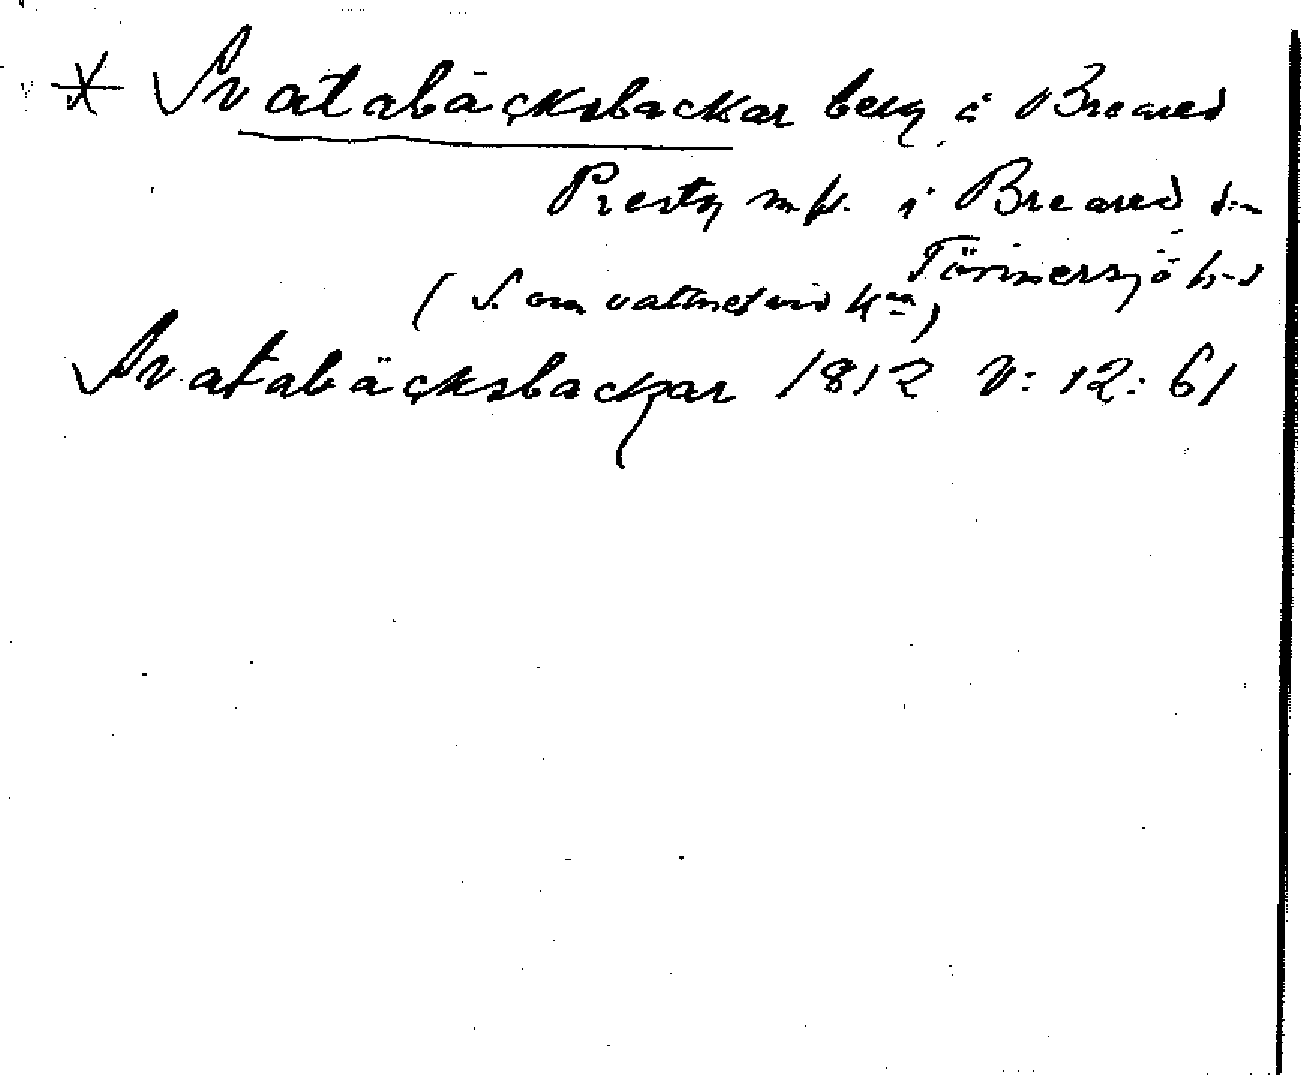 * Svatabäcksbackar berg å Breared
Prestg m fl. i Breared s-n
Tönnersjö h-d
(S. om vattnet vid k-n)
Svatabäcksbackar 1812 V: 12: 61